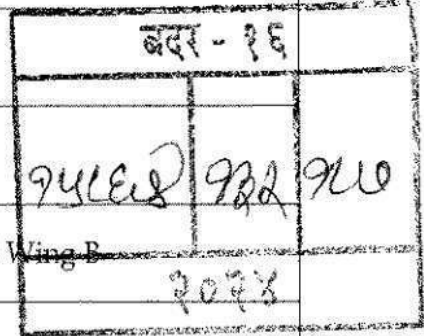 बदर - १६
१३२ १८७
Wing B
२०२४